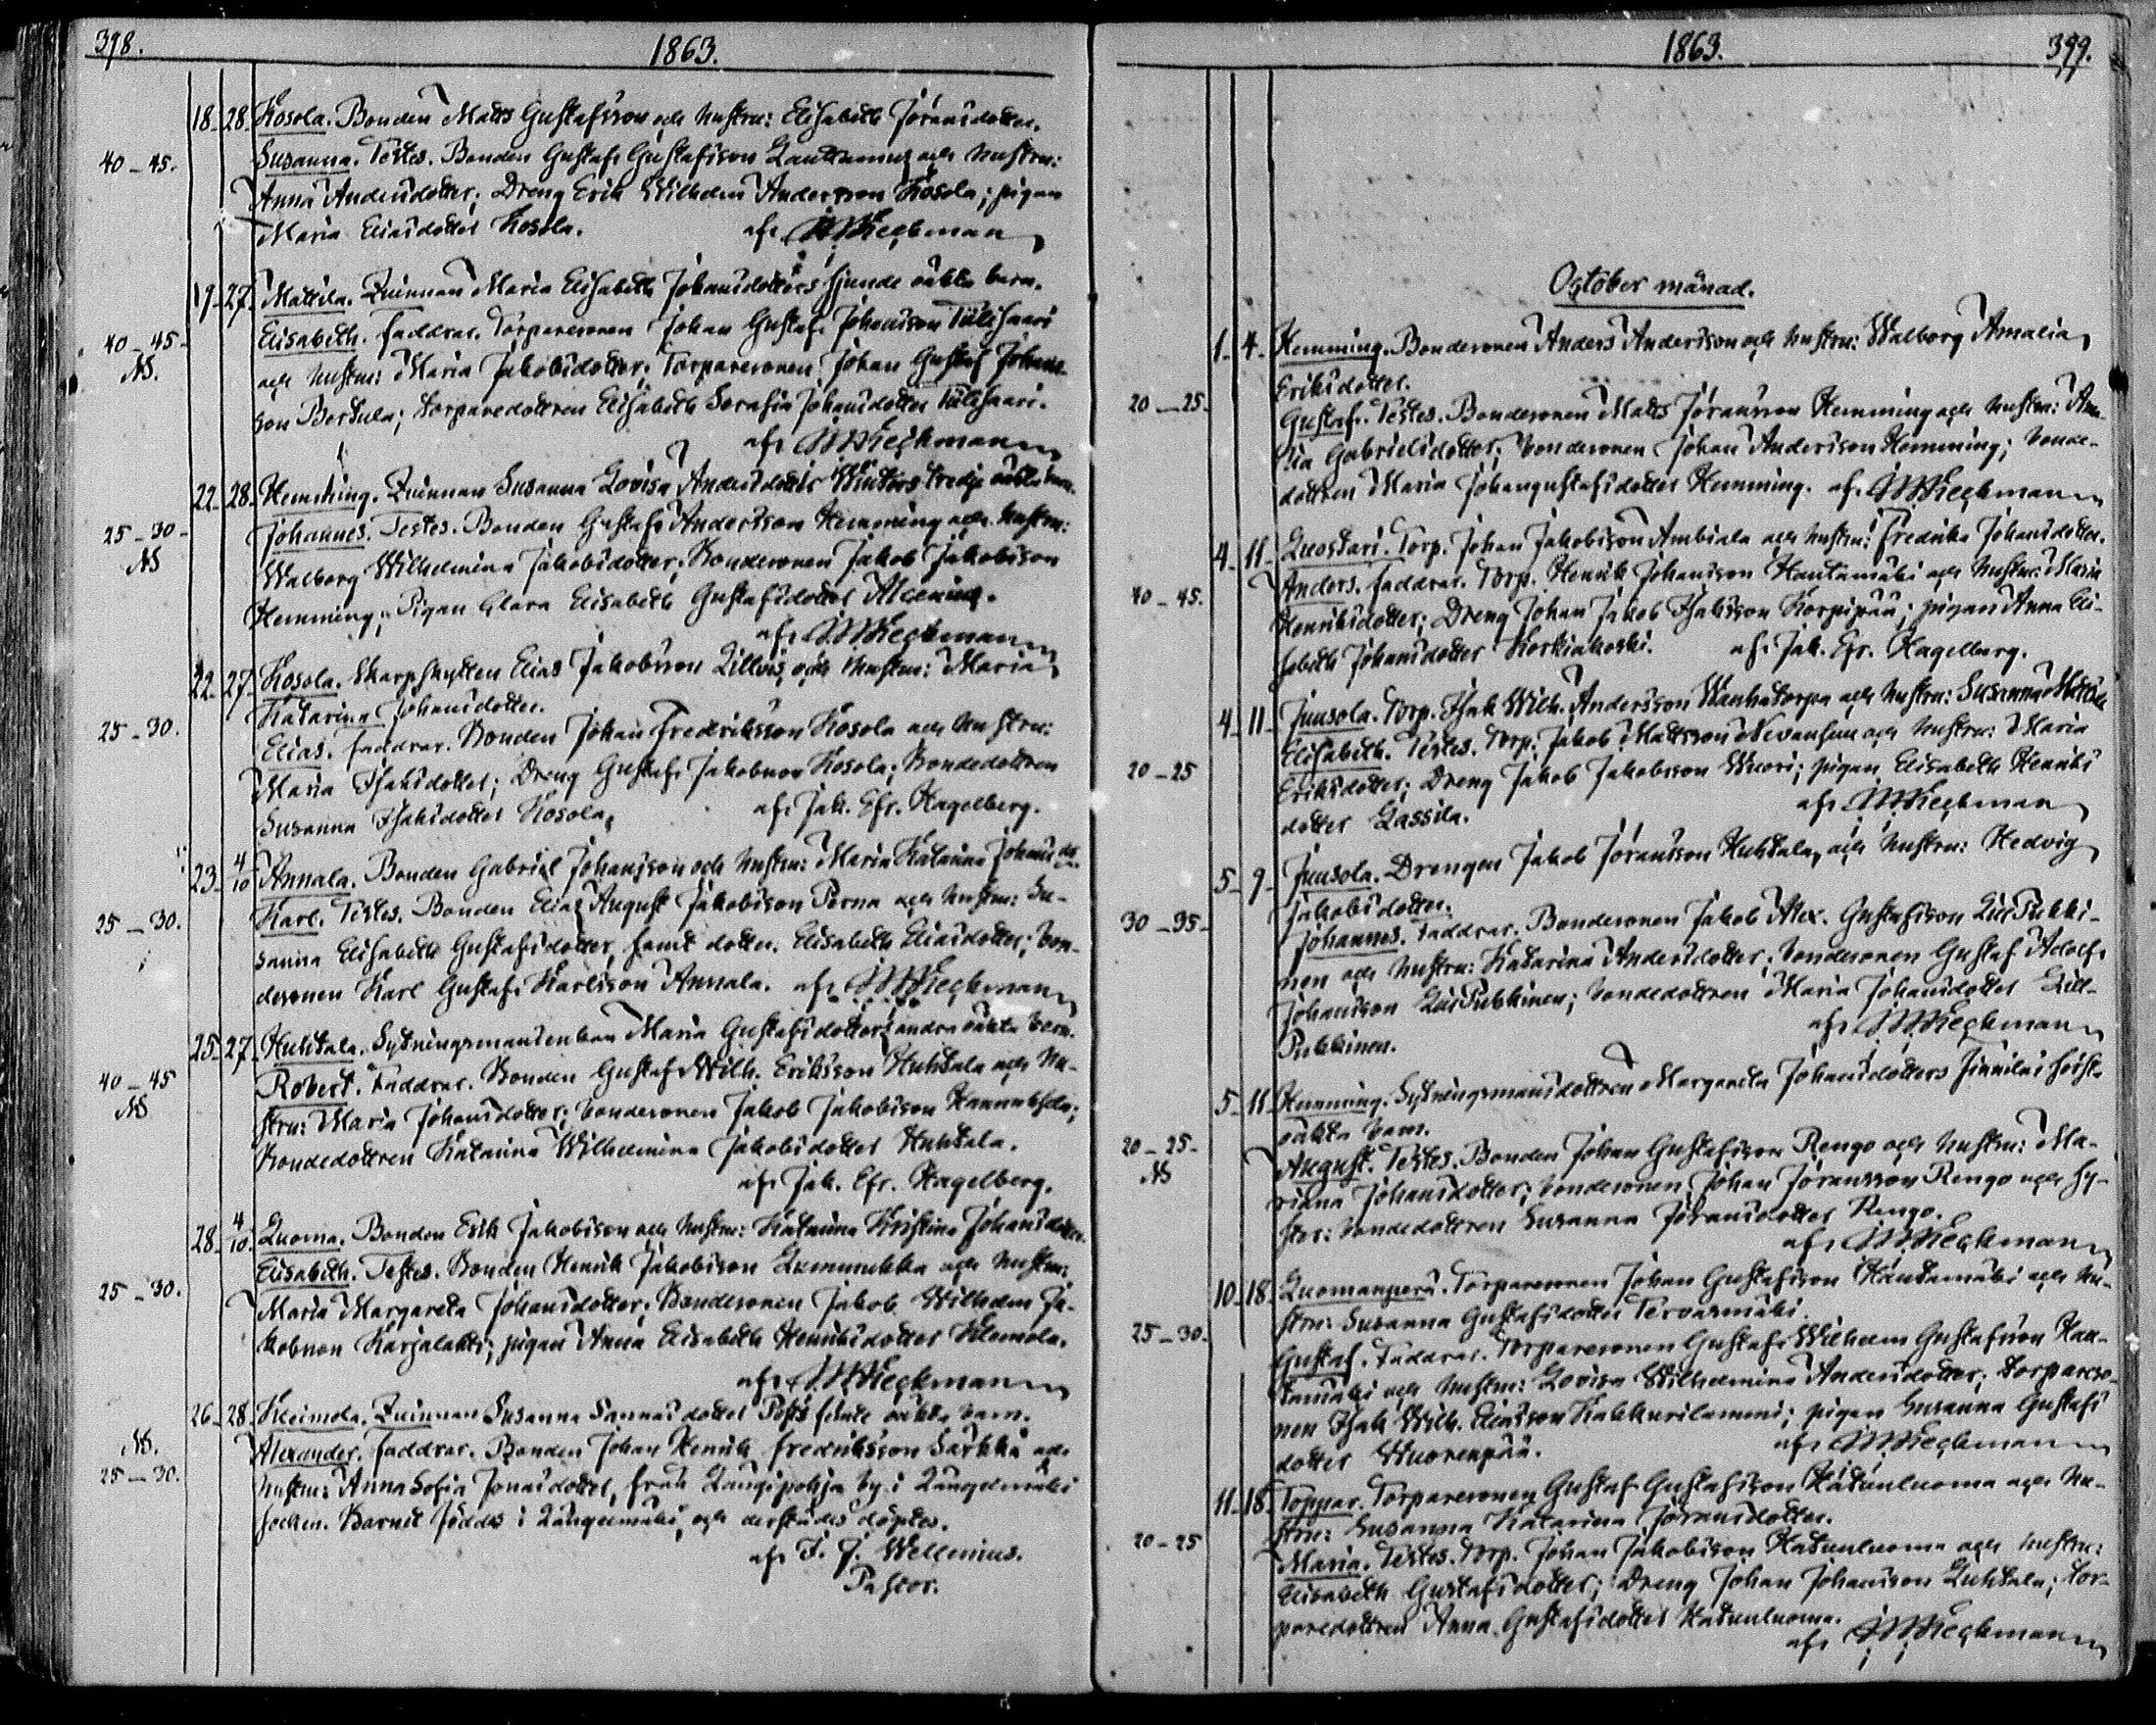 398.
1863.
18. 28. Kosola. Bonden Matts Gustafsson och hustru: Elisabeth Jöransdotter.
40-45. Susanna. Testes. Bonden Gustaf Gustafsson och hustru:
Anna Andersdotter; Dreng Erik Wilhelm Andersson Kosola; pigan
Maria Eliasdotter Kosola. af
19. 27. Mattila. Quinnan Maria Elisabeth Johansdotters sjunde oäkta barn.
40-45. Elisabeth. Faddrar. Torparesonen Johan Gustaf Johansson Tülisaari
NB. och hustru: Maria Jakobsdotter; Torparesonen Johan Gustaf Johans-
son Pertula; torparedottren Elisabeth Serafia Johansdotter Tülisaari.
af
22. 28. Hemming. Quinnan Susanna Lovisa Andersdotter tredje oäkta barn.
25-30. Johannes. Testes. Bonden Gustaf Andersson Hemming och hustru:
NB Walborg Wilhelmina Jakobsdotter; Bondesonen Jakob Jakobsson
Hemming; Pigan Clara Elisabeth Gustafsdotter
af
22. 27. Kosola. Skarpskytten Elias Jakobsson och hustru: Maria
Katarina Johansdotter.
25-30. Elias. Faddrar. Bonden Johan Fredriksson Kosola och hustru:
Maria Isaksdotter; Dreng Gustaf Jakobsson Kosola; Bondedottren
Susanna Isaksdotter Kosola. af Jak. Efr. Hagelberg.
23. 4/10 Annala. Bonden Gabriel Johansson och hustru: Maria Katarina Johansdr.
25-30. Karl. Testes. Bonden Elias August Jakobsson Perna och hustru: Su-
sanna Elisabeth Gustafsdotter, samt dotter. Elisabeth Eliasdotter; bon-
desonen Karl Gustaf Karlsson Annala. af
25. 27. Huhtala. Sytningsmansenkan Maria Gustafsdotters andra oäkta barn.
40-45 Robert. Faddrar. Bonden Gustaf Wilh. Eriksson Huhtala och hu-
NB stru: Maria Johansdotter; bondesonen Jakob Jakobsson Hannuksela;
Bondedottren Katarina Wilhelmina Jakobsdotter Huhtala.
af Jak. Efr. Hagelberg.
28. 4/10. Luoma. Bonden Erik Jakobsson och hustru: Katarina Kristina Johansdotter.
25-30. Elisabeth. Testes. Bonden Henrik Jakobsson och hustru:
Maria Margareta Johansdotter; Bondesonen Jakob Wilhelm Ja-
kobsson Karjalahti; pigan Anna Elisabeth Henriksdotter Kleemola.
af
26. 28. Kleimola. Quinnan Susanna Sannasdotter oäkta barn.
NB. Alexander. Faddrar. Bonden Johan Henrik Fredriksson Särkkä och
25-30. hustru: Anna Sofia Jonasdotter, från Längipohja by i Längelmäki
socken. Barnet föddes i Längelmäki, och derstädes döptes.
af F. J. Wellenius.
Pastor.
1863.
399.
October månad.
1. 4. Hemming. Bondesonen Anders Andersson och hustru: Walborg Amalia
Eriksdotter.
20-25. Gustaf. Testes. Bondesonen Matts Jöransson Hemming och hustru: An-
na Gabrielsdotter; bondesonen Johan Andersson Hemming; bonde-
dottren Maria Johangustafsdotter Hemming. af
4. 11. Luostari. Torp. Johan Jakobsson Ambiala och hustru: Fredrika Johansdotter.
40-45. Anders. Faddrar. Torp. Henrik Johansson Hautamäki och hustru: Maria
Henriksdotter; Dreng Johan Jakob Isaksson Korpipää; pigan Anna Eli-
sabeth Johansdotter Korkiakoski. af Jak. Efr. Hagelberg.
4. 11. Juusola. Torp. Isak Wilh. Andersson Wanhatorpa och hustru: Susanna
20-25 Elisabeth. Testes. Torp. Jakob Mattsson och hustru: Maria
Eriksdotter; Dreng Jakob Jakobsson Wuori; pigan Elisabeth Henriks
dotter Lassila. af
5. 9. Juusola. Drengen Jakob Jöransson Huhtala, och hustru: Hedvig
Jakobsdotter.
30-35. Johannes. Faddrar. Bondesonen Jakob Alex. Gustafsson Lill Pukki-
nen och hustru: Katarina Andersdotter; bondesonen Gustaf Adolf
Johansson Lill Pukkinen; bondedottren Maria Johansdotter Lill-
Pukkinen. af
5. 11. Hemming. Sytningsmansdottren Margareta Johansdotters första
oäkta barn.
20-25. August. Testes. Bonden Johan Gustafsson Rengo och hustru: Ma-
NB riana Johansdotter; bondesonen Johan Jöransson Rengo och sy-
ster: bondedottren Susanna Jöransdotter Rengo.
af
10. 18. Luomanperä. Torparesonen Johan Gustafsson Hautamäki och hu-
stru: Susanna Gustafsdotter Tervasmäki.
25-30. Gustaf. Faddrar. Torparesonen Gustaf Wilhelm Gustafsson Hau-
tamäki och hustru: Lovisa Wilhelmina Andersdotter; torpareso-
nen Isak Wilh. Eliasson Kakkurilammi; pigan Susanna Gustafs
dotter Wuorenpää. af
11. 18. Toppar. Torparesonen Gustaf Gustafsson Katunluoma och hu-
stru: Susanna Katarina Jöransdotter.
20-25 Maria. Testes. Torp. Johan Jakobsson Katunluoma och hustru:
Elisabeth Gustafsdotter; Dreng Johan Johansson Luhtala; tor-
paredottren Anna Gustafsdotter Katunluoma.
af